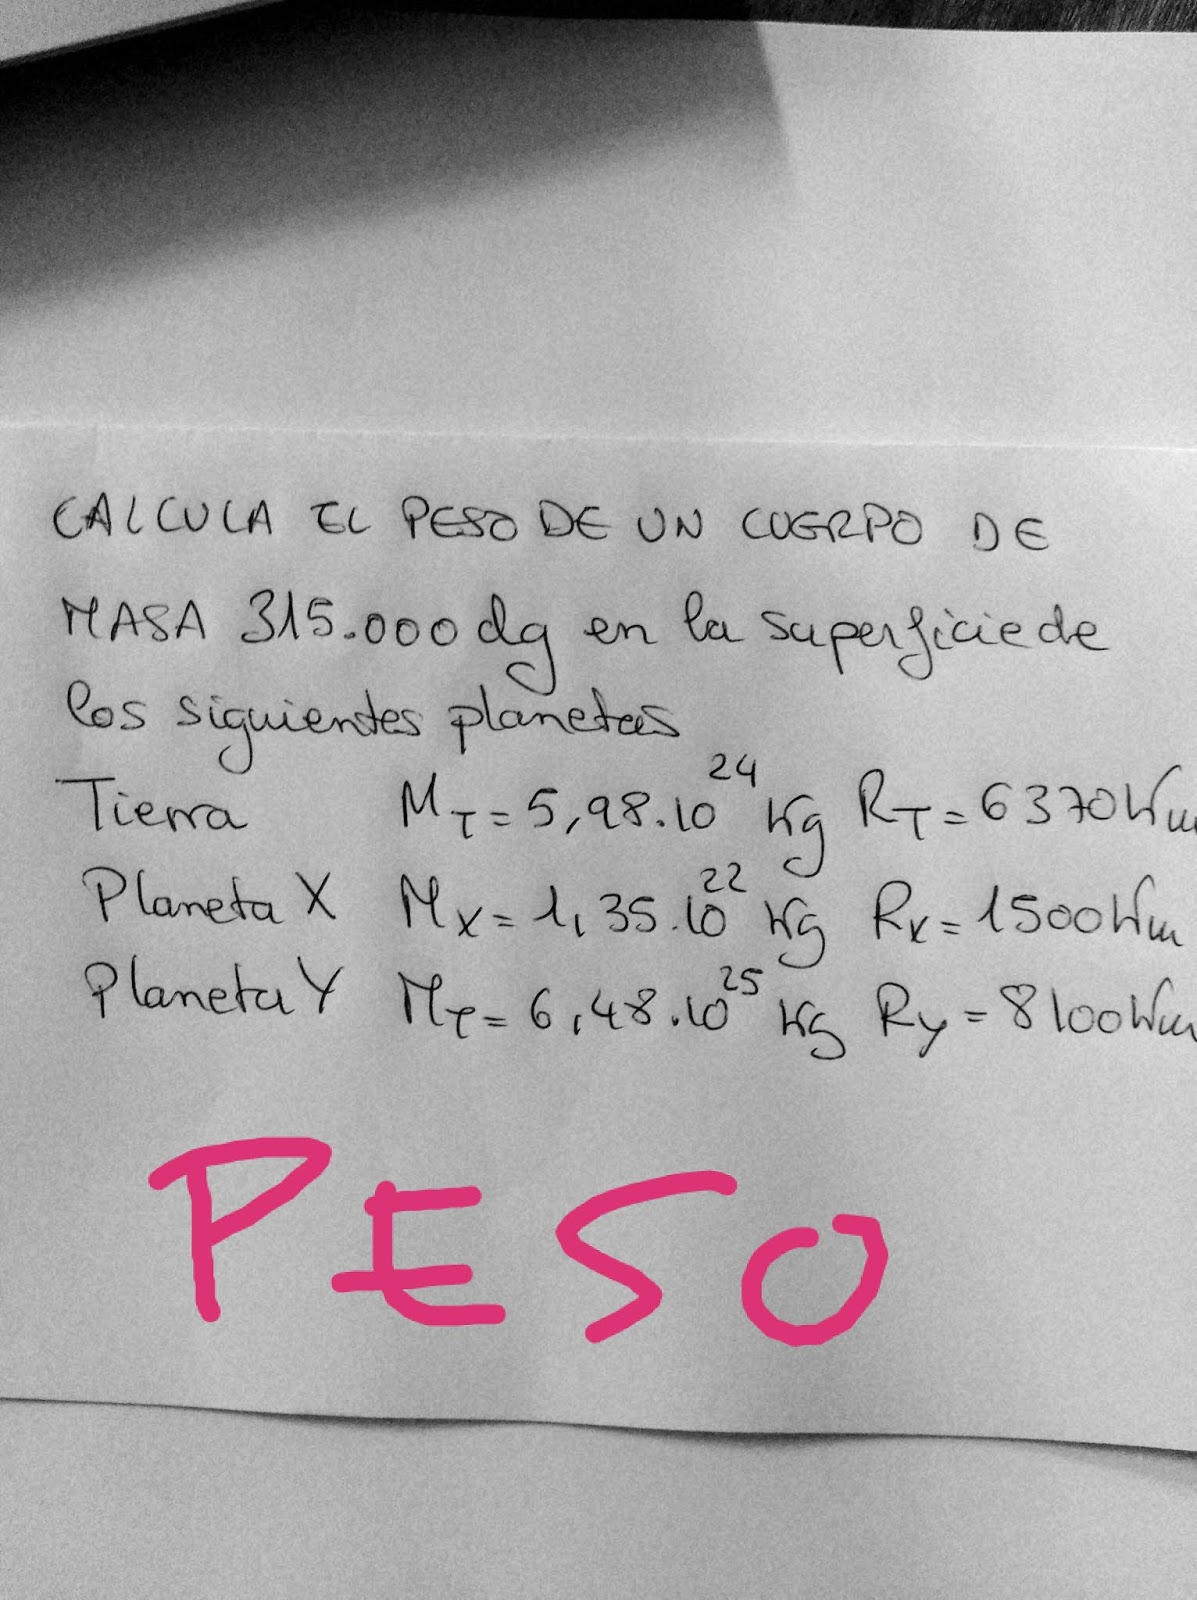 CALCULA EL PESO DE UN CUERPO DE
MASA 315.000 dg en la superficie de
los siguientes planetas
Tierra M_T = 5,98.10^24 Kg R_T = 6370 Km
Planeta X M_X = 1,35.10^22 Kg R_X = 1500 Km
Planeta Y M_T = 6,48.10^25 Kg R_y = 8100 Km
PESO